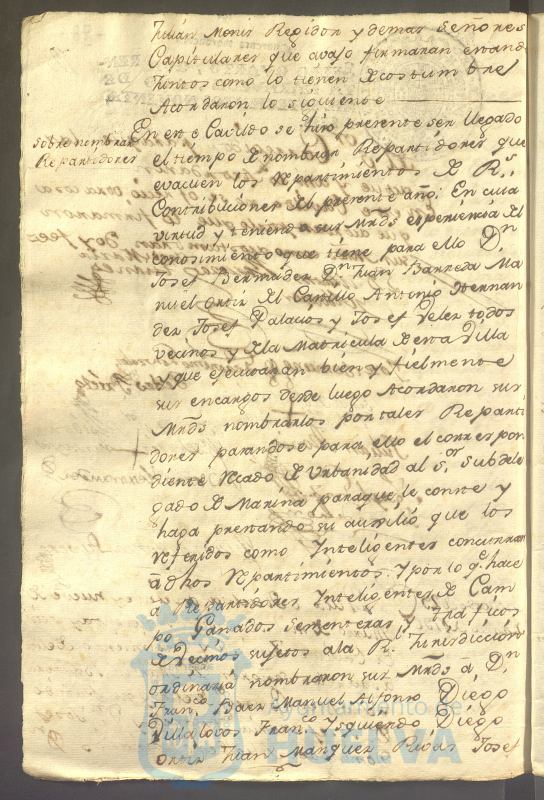 Julián Monis Regidor y demas Señores
Capitulares que avajo firmaran estando
Juntos como lo tienen de costumbre
Acordaron lo siguiente
Sobre nombrar
Repartidores
En este Cavildo se hizo presente ser llegado
el tiempo de nombrar Repartidores que
evacuen los repartimientos de Rs
Contribuciones del presente año: En cuia
virtud y teniendo sus Mrds experiencia del
conosimiento que tiene para ello Dn
Josef Bermudez Dn Juan Barreda Ma
nuel Ortiz del Castillo Antonio Hernan
dez Josef Palacios y Josef Velez todos
vecinos y de la Matricula de esta Villa
y que ejecutaran bien y fielmente
sus encargos desde luego Acordaron sus
Mrds nombrarlos por tales Reparti
dores pasandose para ello el correspon
diente recado de Urbanidad al Sor Subdele
gado de Marina para que le conste y
haga prestando su auxilio que los
referidos como Inteligentes concurran
a dhos repartimientos. Y por lo qe hace
a Repartidores Inteligentes de Cam
po Ganados Sementeras y Traficos
de Vecinos sujetos a la Rl Jurisdicción
ordinaria nombraron sus Mrds a Dn
Franco Baez Manuel Alfonso Diego
Villalovos Franco Ysquierdo Diego
Ortiz Juan Marquez Rivas Josef
Ayuntamiento de
HUELVA